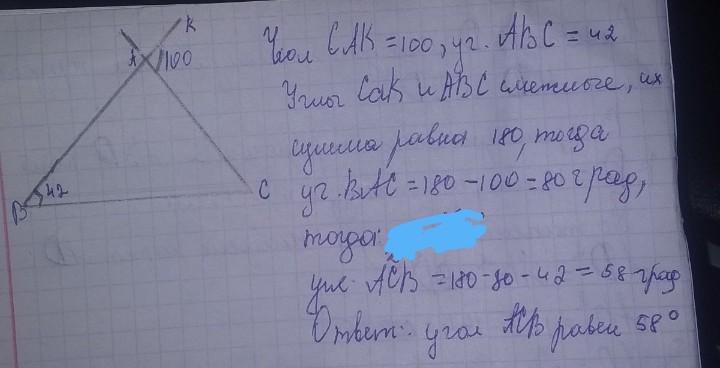 K
A 100
B 42
C
Угол CAK = 100, уг. ABC = 42
Углы CaK и ABC смежные, их
сумма равна 180, тогда
уг. BAC = 180 - 100 = 80 град,
тогда:
ACB = 180 - 80 - 42 = 58 град
Ответ: угол ACB равен 58°